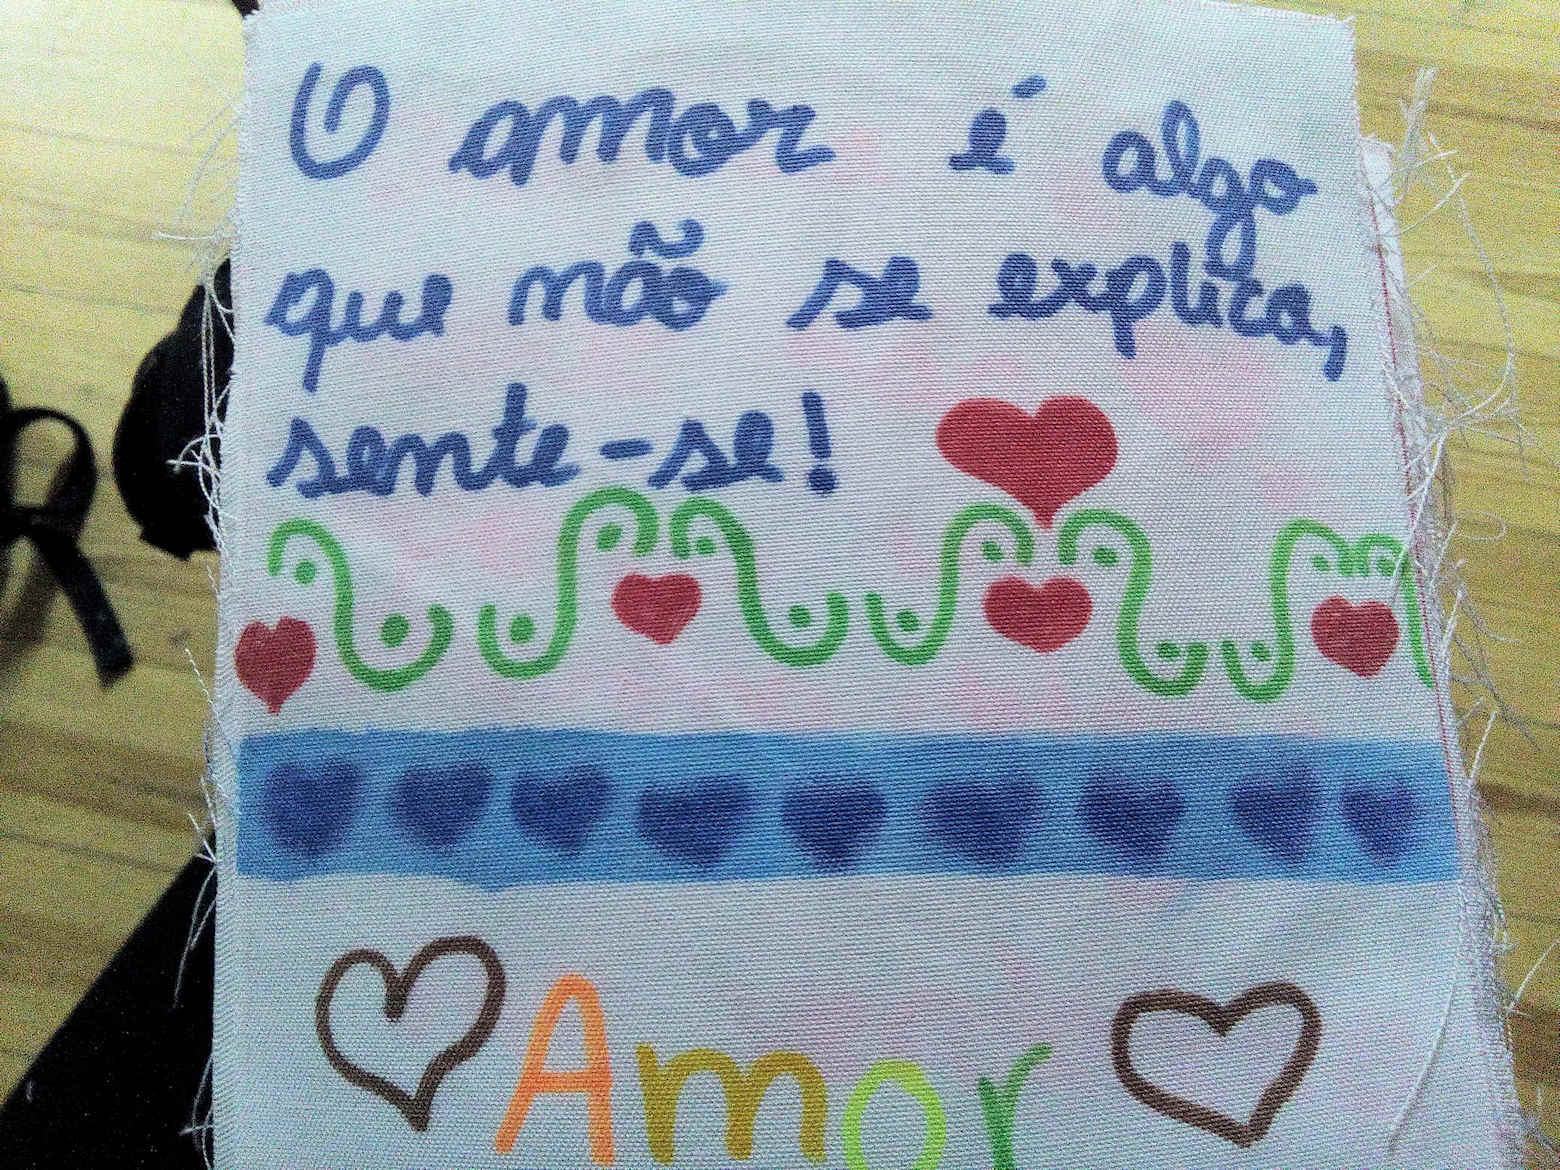 O amor é algo
que não se explica,
sente-se!
Amor